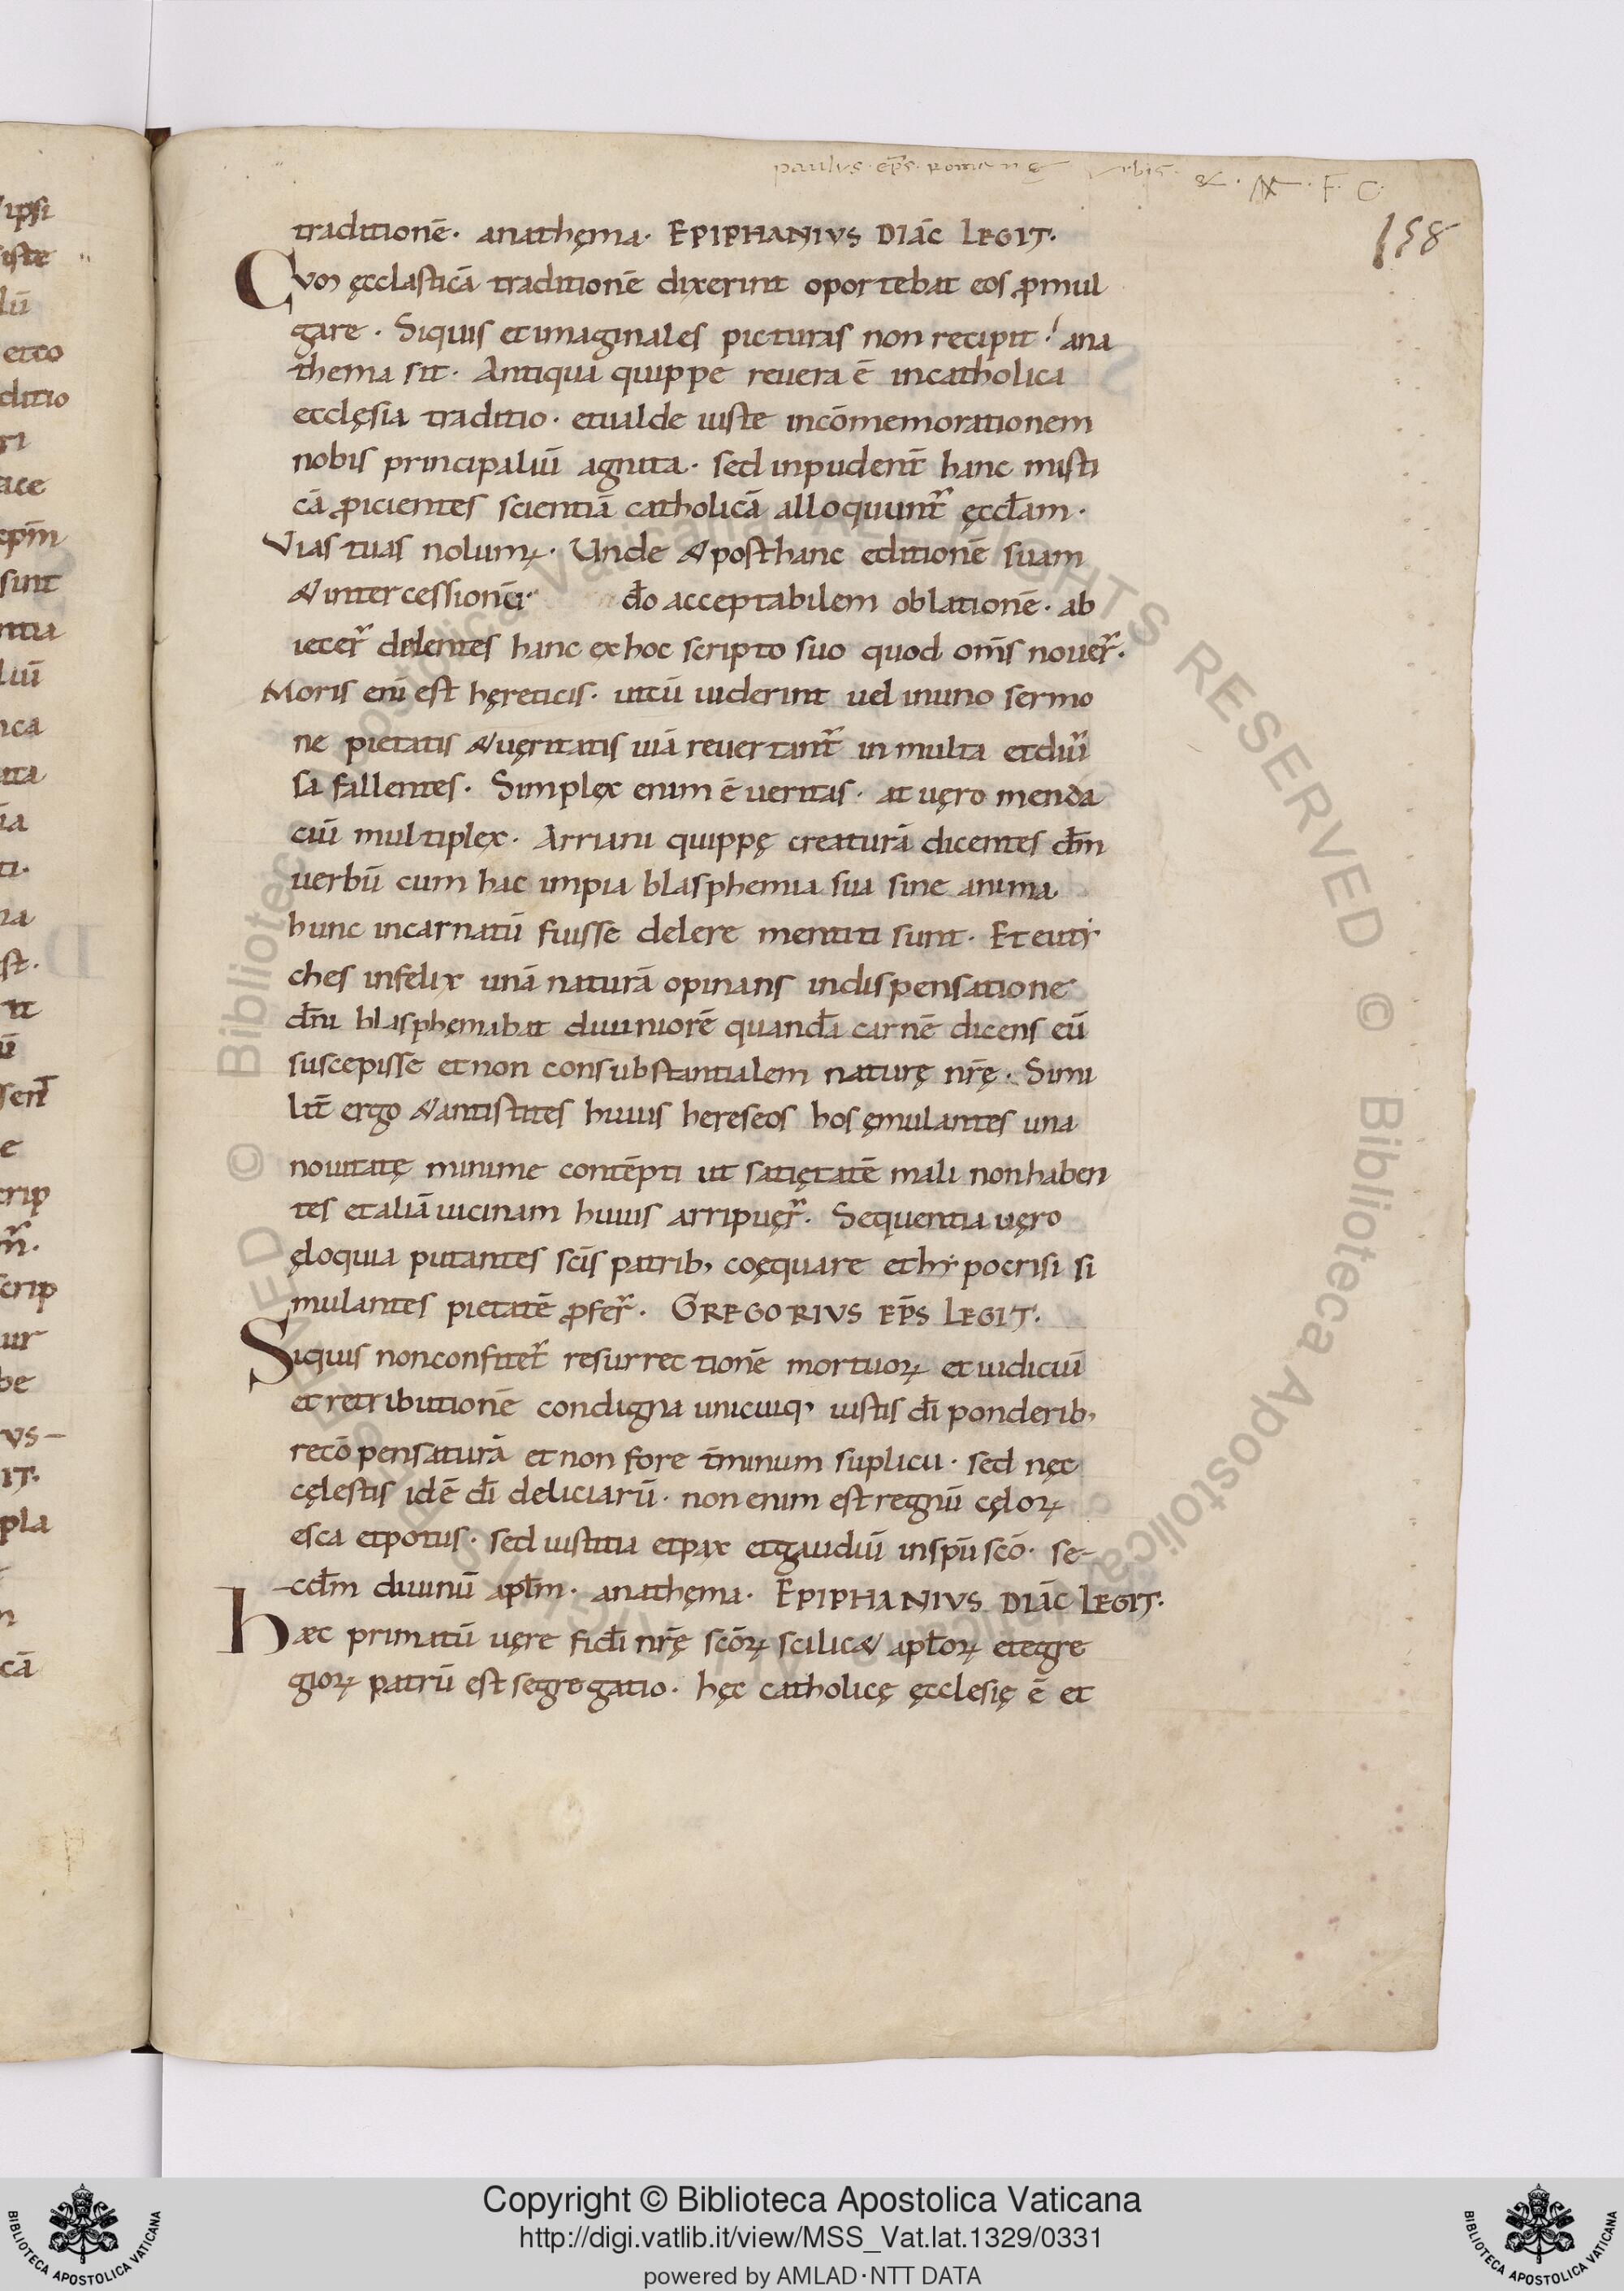 paulus · ep̄s · romane urbis · & · N · F · C ·
158
traditionē · anathęma · EPIPHANIVS DIAC̄ LEGIT ·
Cvm ęcclasticā traditionē dixerint oportebat eos ꝓmul
gare · Siquis et imaginales picturas non recipit · ana
thema sit · Antiqua quippe reuera ē in catholica
ecclęsia traditio · et ualde iuste incōmemorationem
nobis principaliū agnita · sed inpudent̄ hanc misti
cā ꝓicientes scientiā catholicā alloquunt̄ ęccl̄am ·
Vias tuas nolumꝰ · Unde & post hanc editionē suam
& intercessionē d̄o acceptabilem oblationē · ab
iecer̄ delentes hanc ex hoc scripto suo quod om̄s nouer̄ ·
Moris eni est hęreticis · ut cū uiderint uel in uno sermo
ne pietatis & uęritatis uiā reuertint̄ in multa et diu̅
sa fallentes · Simplęx enim ē ueritas · at uęro menda
ciū multiplex · Arriani quippę creaturā dicentes dm̄
uerbū cum hac impia blasphemia sua sine anima
hunc incarnatū fuisse delere mentiti sunt · Et euty
ches infelix unā naturā opinans in dispensatione
dn̄i blasphęmabat diuiniorē quandā carnē dicens eū
suscepisse et non consubstantialem naturę nr̄ę · Simi
lit̄ ergo & antistites huius hereseos hos ęmulantes una
nouitatę minime contēpti ut satiętatē mali non haben
tes et aliā uicinam huius arripuęr̄ · Sequentia uęro
ęloquia putantes sc̄is patrib; coęquare et hypocrisi si
mulantes pietatē ꝓfer̄ · GREGORIVS EP̄S LEGIT ·
Siquis non confitet̄ resurrectionē mortuoꝝ et iudiciū
et retributionē condigna unicuiq; iustis dī ponderib;
recōpensaturā et non fore t̄minum suplicii · sed nęc
cęlestis idē dī deliciarū · non enim est regnū cęloꝝ
esca et potus · sed iustitia et pax et gaudiū in spū scō · se-
cdm̄ diuinū apl̄m · anathęma · EPIPHANIVS DIAC̄ LEGIT ·
Hæc primatū uęre fidi nr̄ę scōꝝ scilic& apl̄oꝝ et egre
gioꝝ patrū est segregatio · hęc catholicę ęcclesię ē et
Copyright © Biblioteca Apostolica Vaticana
http://digi.vatlib.it/view/MSS_Vat.lat.1329/0331
powered by AMLAD·NTT DATA